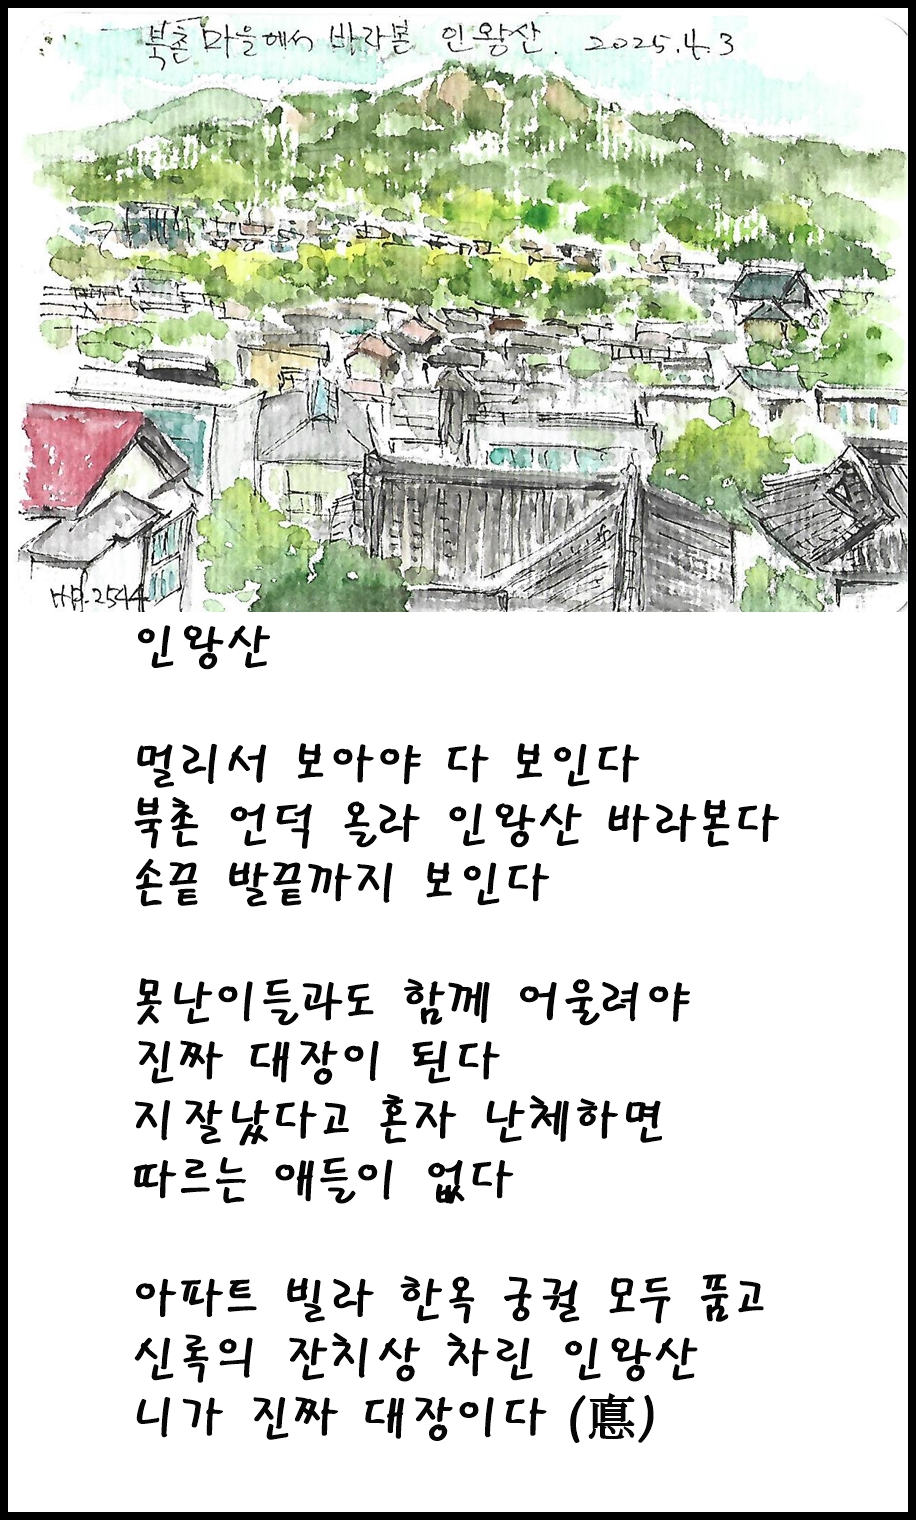 북촌 마을에서 바라본 인왕산. 2025.4.3
인왕산
멀리서 보아야 다 보인다
북촌 언덕 올라 인왕산 바라본다
손끝 발끝까지 보인다
못난이들과도 함께 어울려야
진짜 대장이 된다
지잘났다고 혼자 난체하면
따르는 애들이 없다
아파트 빌라 한옥 궁궐 모두 품고
신록의 잔치상 차린 인왕산
니가 진짜 대장이다 (悳)